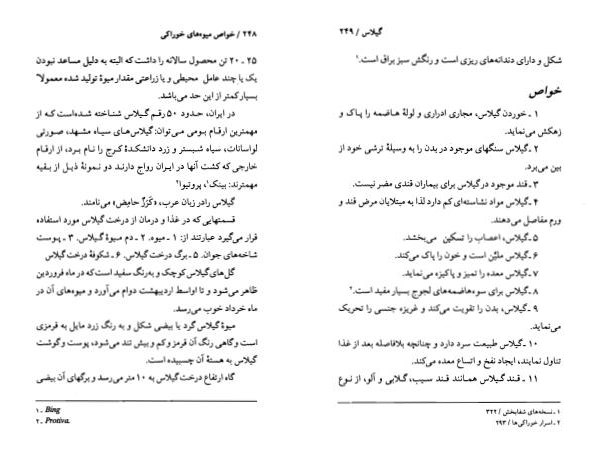 ۲۴۸ / خواص میوه‌های خوراکی
۲۵ ـ ۲۰ تن محصول سالانه را داشت که البته به دلیل مساعد نبودن
یک یا چند عامل محیطی و یا زراعتی مقدار میوهٔ تولید شده معمولاً
بسیار کمتر از این حد می‌باشد.
در ایران، حدود ۵۰ رقم گیلاس شناخته شده‌است که از
مهمترین ارقام بومی می‌توان: گیلاس‌های سیاه مشهد، صورتی
لواسانات، سیاه شبستر و زرد دانشکدهٔ کرج را نام برد، از ارقام
خارجی که کشت آنها در ایران رواج دارند دو نمونهٔ ذیل از بقیه
مهمترند: بینک۱، پروتیوا۲
گیلاس رادر زبان عرب، «کَرَزٌ حامِض» می‌نامند.
قسمتهایی که در غذا و درمان از درخت گیلاس مورد استفاده
قرار می‌گیرد عبارتند از: ۱ ـ میوه. ۲ ـ دم میوهٔ گیلاس. ۳ ـ پوست
شاخه‌های جوان. ۵ ـ برگ درخت گیلاس. ۶ ـ شکوفهٔ درخت گیلاس
گل‌های گیلاس کوچک و به‌رنگ سفید است که در ماه فروردین
ظاهر می‌شود و تا اواسط اردیبهشت دوام می‌آورد و میوه‌های آن در
ماه خرداد خوب می‌رسد.
میوهٔ گیلاس گرد یا بیضی شکل و به رنگ زرد مایل به قرمزی
است وگاهی رنگ آن قرمز وکم و بیش تند می‌شود، پوست وگوشت
گیلاس به هستهٔ آن چسبیده است.
گاه ارتفاع درخت گیلاس به ۱۰ متر می‌رسد و برگهای آن بیضی
۱ ـ Bing
۲ ـ Protiva.
گیلاس / ۲۴۹
شکل و دارای دندانه‌های ریزی است و رنگش سبز براق است.۱
خواص
۱ ـ خوردن گیلاس، مجاری ادراری و لولهٔ هاضمه را پاک و
زهکش می‌نماید.
۲ ـ گیلاس سنگهای موجود در بدن را به وسیلهٔ ترشی خود از
بین می‌برد.
۳ ـ قند موجود در گیلاس برای بیماران قندی مضر نیست.
۴ ـ گیلاس مواد نشاسته‌ای کم دارد لذا به مبتلایان مرض قند و
ورم مفاصل می‌دهند.
۵ ـ گیلاس، اعصاب را تسکین می‌بخشد.
۶ ـ گیلاس ملیّن است و خون را پاک می‌کند.
۷ ـ گیلاس معده را تمیز و پاکیزه می‌نماید.
۸ ـ گیلاس برای سوءهاضمه‌های لجوج بسیار مفید است.۲
۹ ـ گیلاس، بدن را تقویت می‌کند و غریزه جنسی را تحریک
می‌نماید.
۱۰ ـ گیلاس طبیعت سرد دارد و چنانچه بلافاصله بعد از غذا
تناول نمایند، ایجاد نفخ و اتساع معده می‌کند.
۱۱ ـ قند گیلاس همانند قند سیب، گلابی و آلو، از نوع
۱ ـ نسخه‌های شفابخش / ۳۲۲
۲ ـ اسرار خوراکی‌ها / ۲۹۳